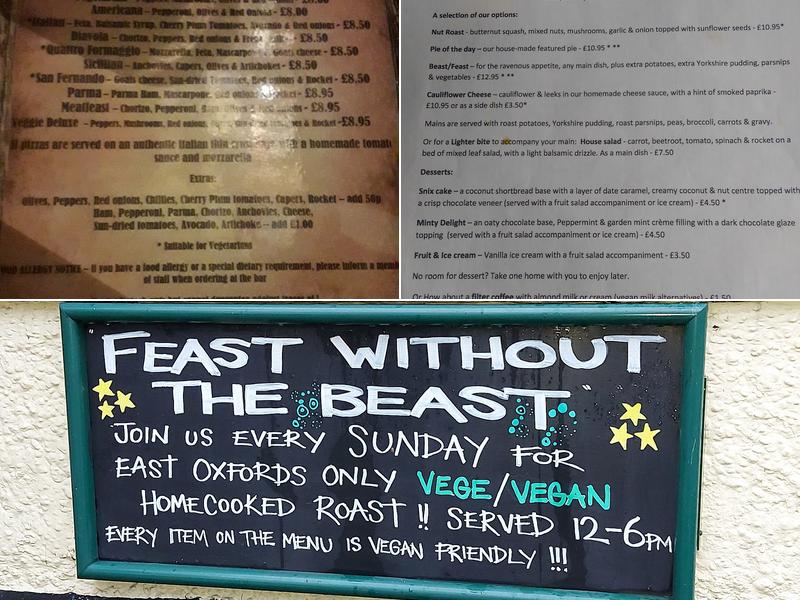 Americana – Pepperoni, Olives & Red Onions – £8.00
*Italian – Feta, Balsamic Syrup, Cherry Plum Tomatoes, Avocado & Red onions – £8.50
Diavola – Chorizo, Peppers, Red onions & Fresh – £8.50
*Quattro Formaggio – Mozzarella, Feta, Mascarpone, Goats cheese – £8.50
Sicilian – Anchovies, Capers, Olives & Artichokes – £8.50
*San Fernando – Goats cheese, Sun-dried Tomatoes, Red onions & Rocket – £8.50
Parma – Parma Ham, Mascarpone, Red onions & Rocket – £8.95
Meatfeast – Chorizo, Pepperoni, Red onions – £8.95
Veggie Deluxe – Peppers, Mushrooms, Red onions, & Rocket – £8.95
ll pizzas are served on an authentic Italian thin crust with a homemade tomato
sauce and mozzarella
Extras:
Olives, Peppers, Red onions, Chillies, Cherry Plum tomatoes, Capers, Rocket – add 50p
Ham, Pepperoni, Parma, Chorizo, Anchovies, Cheese,
Sun-dried tomatoes, Avocado, Artichoke – add £1.00
* Suitable for Vegetarians
ALLERGY NOTICE – If you have a food allergy or a special dietary requirement, please inform a
of staff when ordering at the bar
A selection of our options:
Nut Roast - butternut squash, mixed nuts, mushrooms, garlic & onion topped with sunflower seeds - £10.95*
Pie of the day – our house-made featured pie - £10.95 * **
Beast/Feast – for the ravenous appetite, any main dish, plus extra potatoes, extra Yorkshire pudding, parsnips
& vegetables - £12.95 * **
Cauliflower Cheese – cauliflower & leeks in our homemade cheese sauce, with a hint of smoked paprika -
£10.95 or as a side dish £3.50*
Mains are served with roast potatoes, Yorkshire pudding, roast parsnips, peas, broccoli, carrots & gravy.
Or for a Lighter bite to accompany your main: House salad - carrot, beetroot, tomato, spinach & rocket on a
bed of mixed leaf salad, with a light balsamic drizzle. As a main dish - £7.50
Desserts:
Snix cake – a coconut shortbread base with a layer of date caramel, creamy coconut & nut centre topped with
a crisp chocolate veneer (served with a fruit salad accompaniment or ice cream) - £4.50 *
Minty Delight – an oaty chocolate base, Peppermint & garden mint crème filling with a dark chocolate glaze
topping (served with a fruit salad accompaniment or ice cream) – £4.50
Fruit & Ice cream – Vanilla ice cream with a fruit salad accompaniment - £3.50
No room for dessert? Take one home with you to enjoy later.
Or How about a filter coffee with almond milk or cream (vegan milk alternatives) - £1.50
"FEAST WITHOUT
THE BEAST"
JOIN US EVERY SUNDAY FOR
EAST OXFORDS ONLY VEGE/VEGAN
HOMECOOKED ROAST !! SERVED 12-6PM
EVERY ITEM ON THE MENU IS VEGAN FRIENDLY !!!